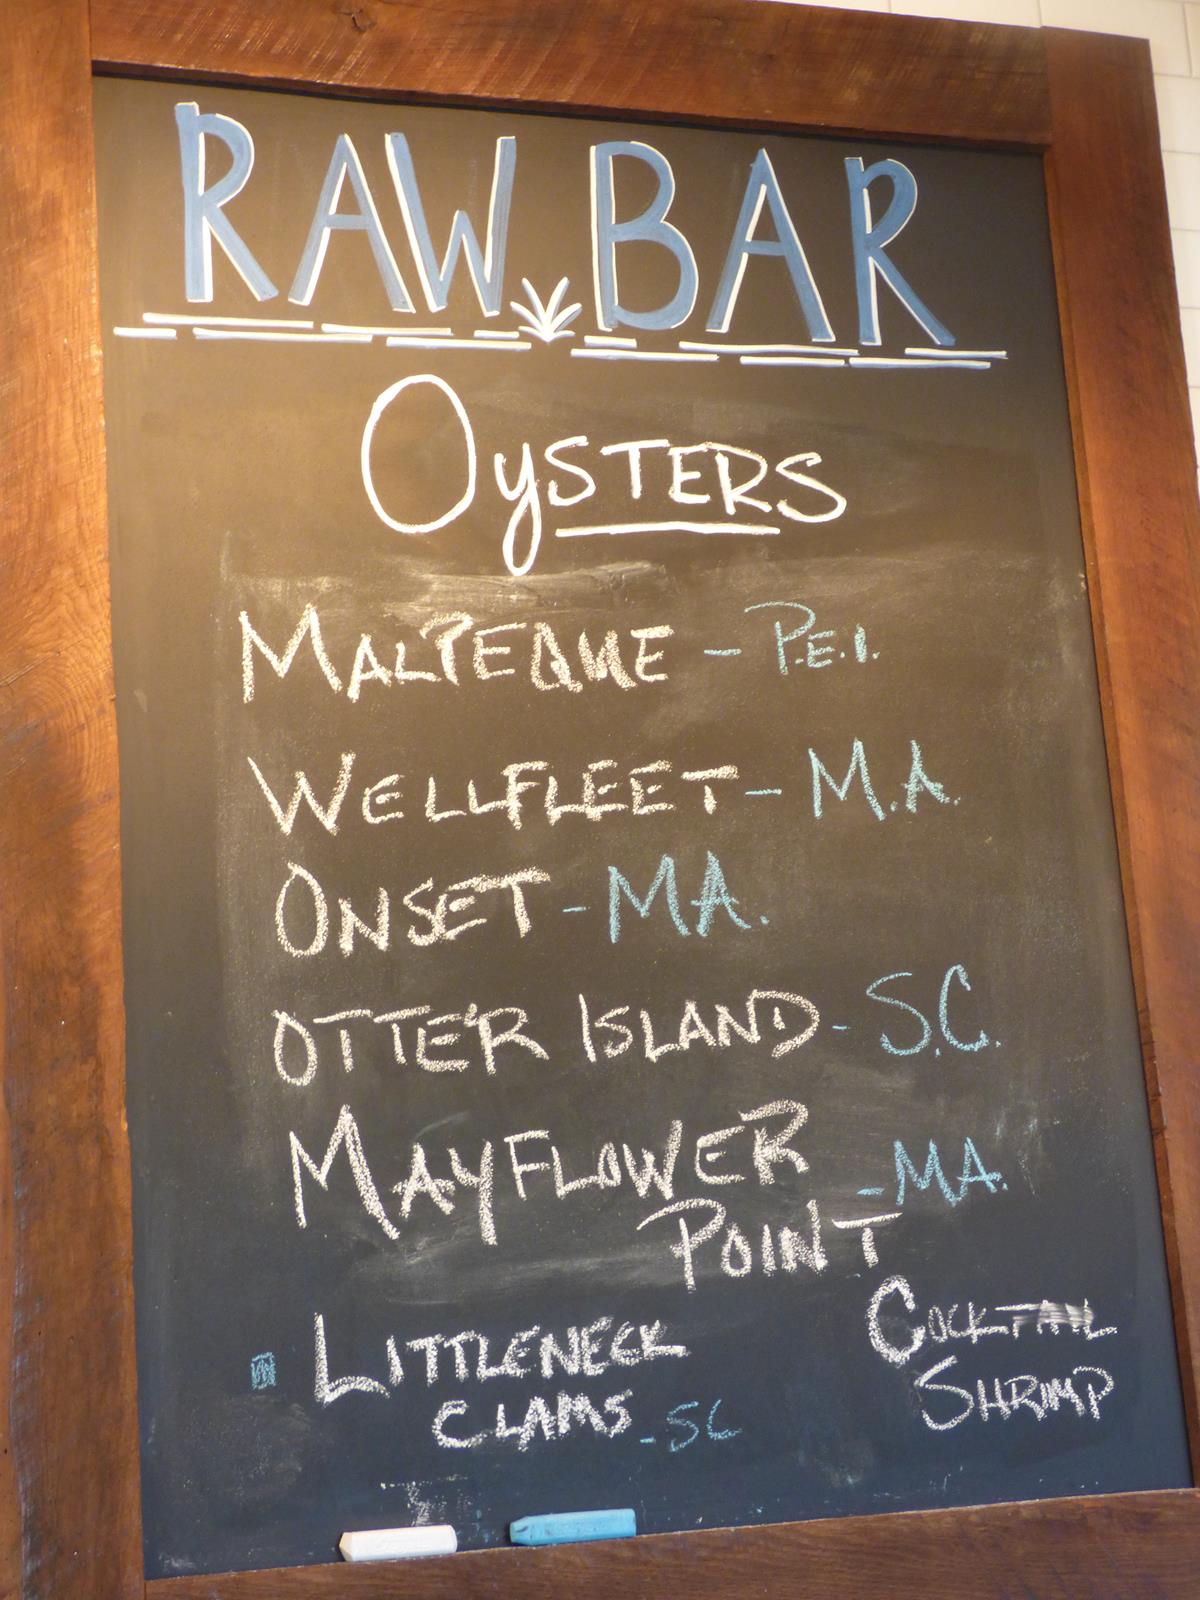 RAW BAR
OYSTERS
MALPEQUE - P.E.I.
WELLFLEET - M.A.
ONSET - MA.
OTTER ISLAND - S.C.
MAYFLOWER
POINT - MA.
LITTLENECK
CLAMS - SC
COCKTAIL
SHRIMP